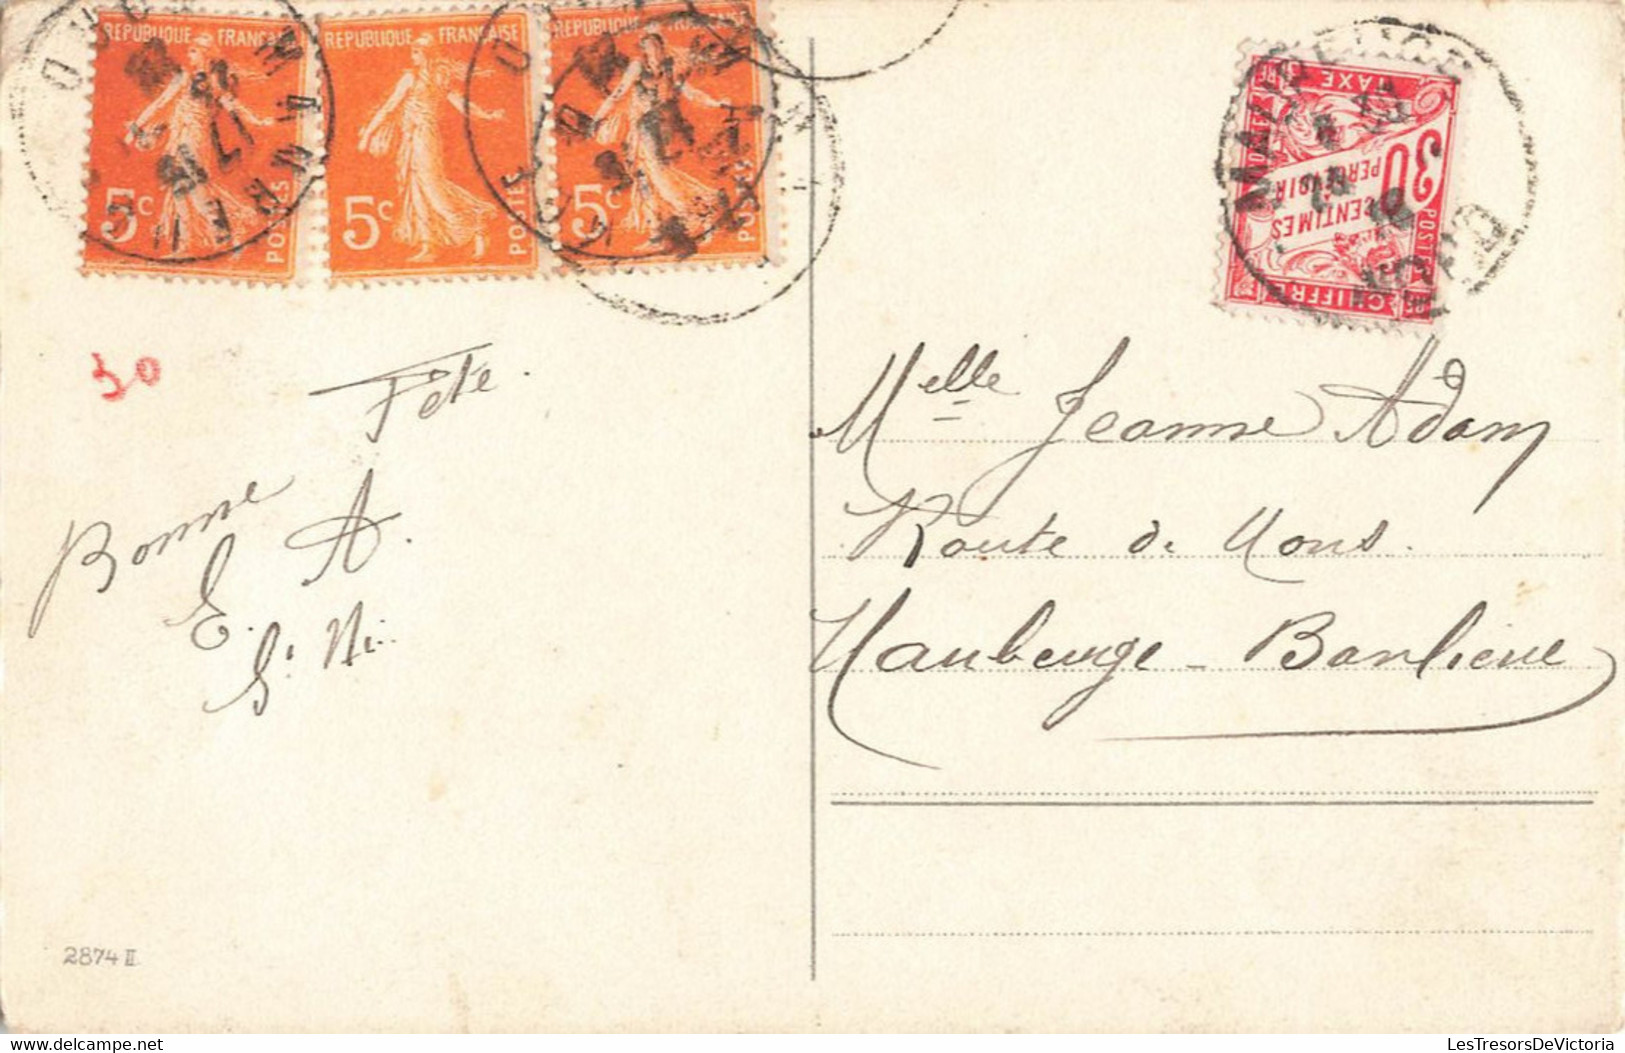 REPUBLIQUE FRANÇAISE
5c
POSTES
REPUBLIQUE FRANÇAISE
5c
POSTES
REPUBLIQUE FRANÇAISE
5c
POSTES
17
30
Fête.
Bonne
E. A.
2874 II
TAXE
30
CENTIMES
PERCEVOIR
POSTES
CHIFFRE
MAUBEUGE
NORD
Melle Jeanne Adam
Route de Mons.
Maubeuge - Banlieue
LesTresorsDeVictoria